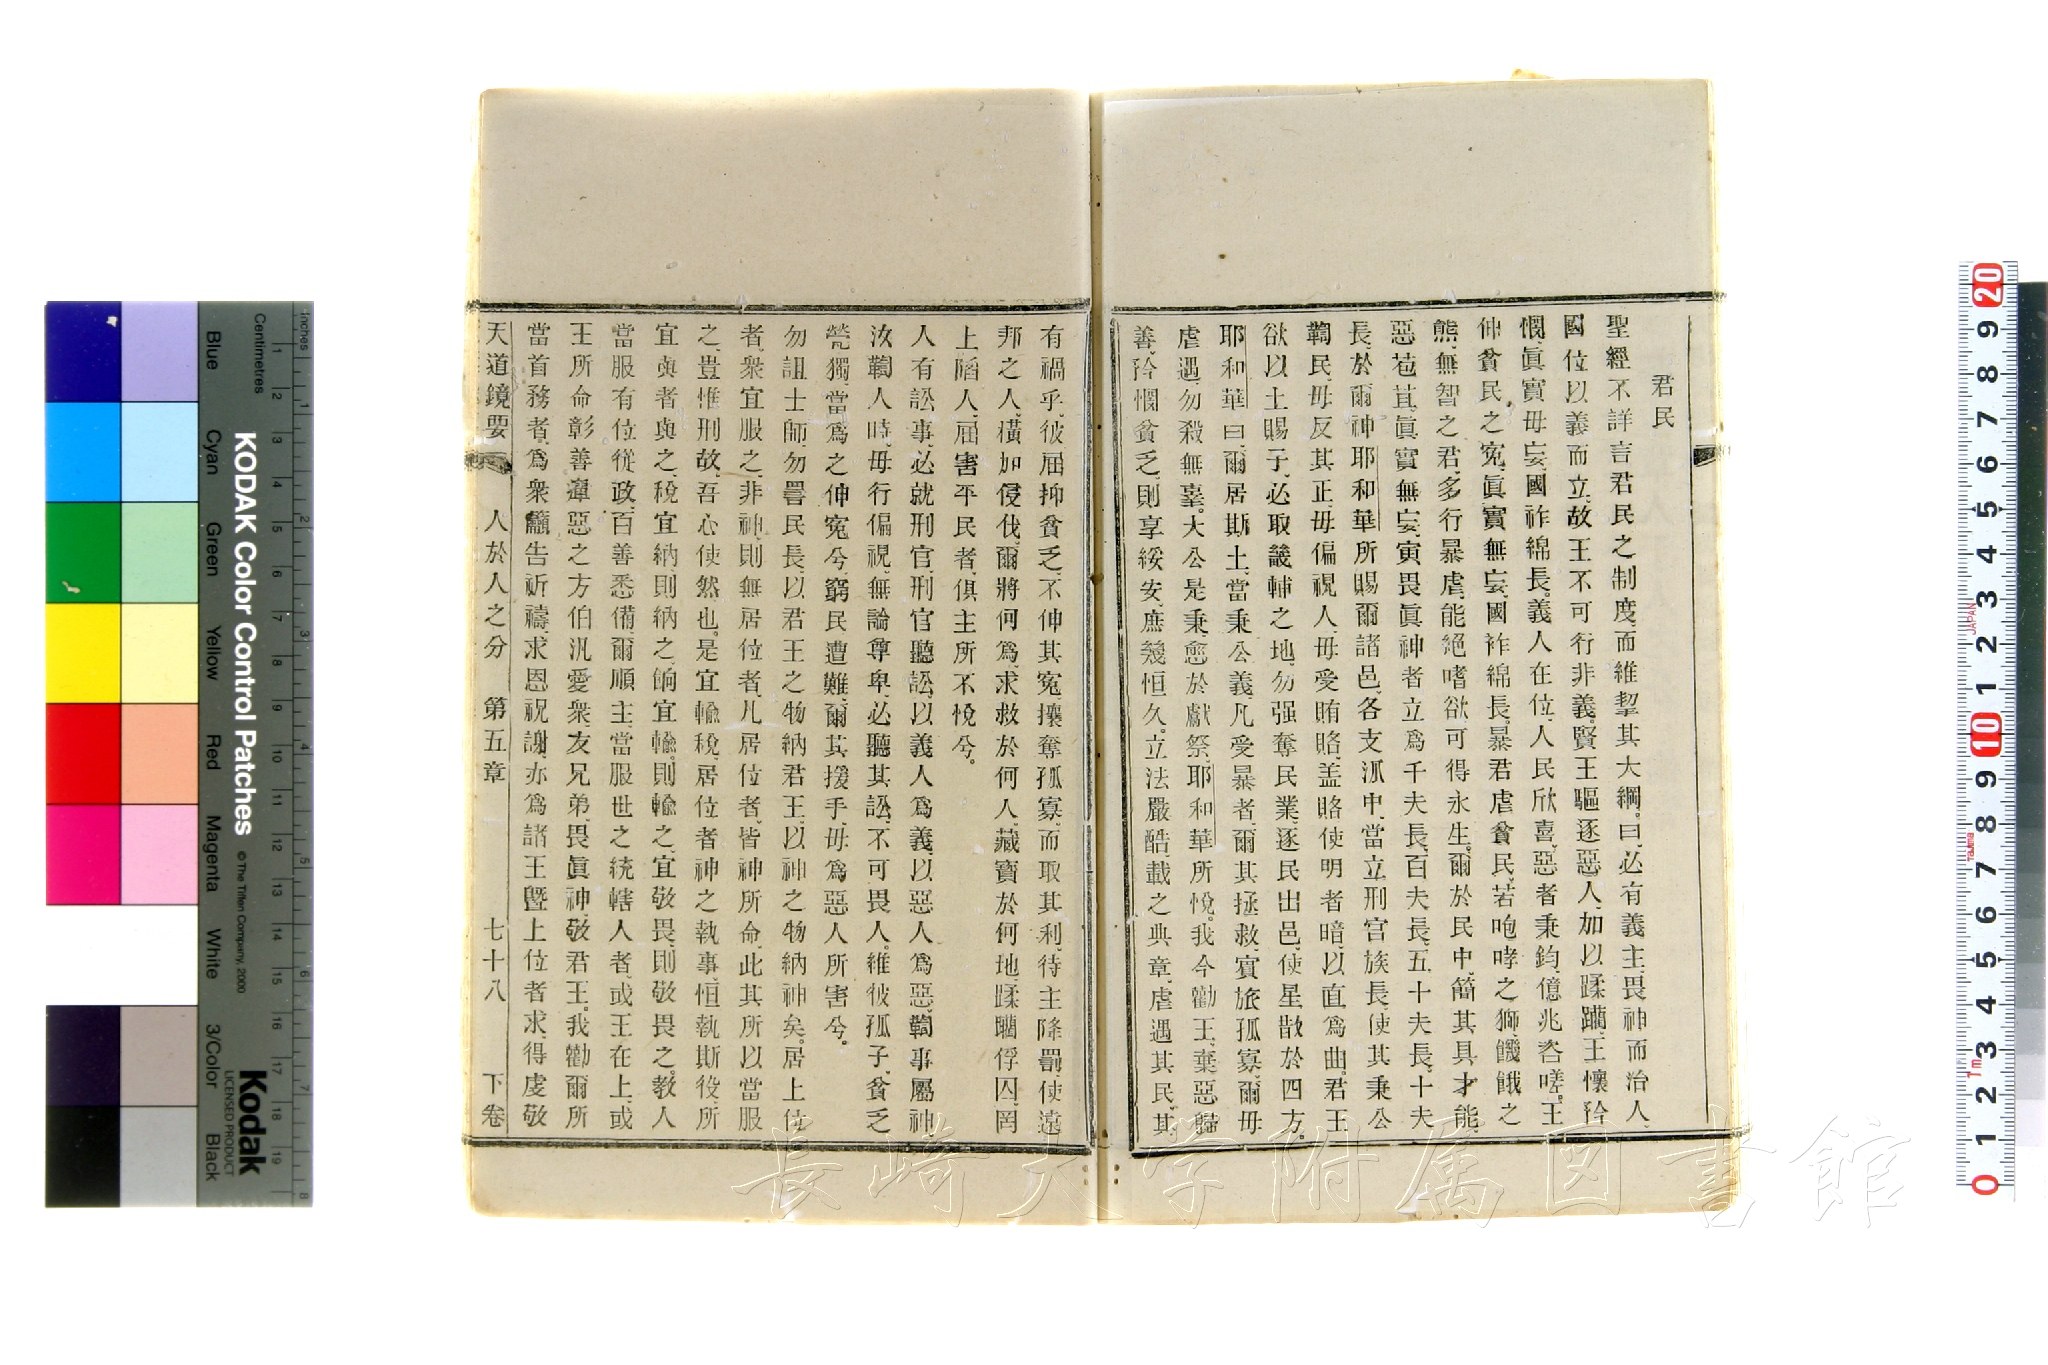 君民
聖經不詳言君民之制度、而維挈其大綱。曰、必有義主、畏神而治人、
國位以義而立、故王不可行非義。賢王驅逐惡人、加以蹂躪、王懷矜
憫、眞實毋妄、國祚綿長。義人在位、人民欣喜、惡者秉鈞、億兆咨嗟。王
伸貧民之冤、眞實無妄、國祚綿長。暴君虐貧民、若咆哮之獅、饑餓之
熊、無智之君、多行暴虐、能絕嗜欲、可得永生。爾於民中、簡其具才能、
惡苞苴、眞實無妄、寅畏眞神者、立爲千夫長、百夫長、五十夫長、十夫
長、於爾神耶和華所賜爾諸邑、各支派中、當立刑官族長、使其秉公
鞫民、毋反其正、毋偏視人、毋受賄賂、盖賂使明者暗、以直爲曲。君王
欲以土賜子、必取畿輔之地、勿强奪民業、逐民出邑、使星散於四方。
耶和華曰、爾居斯土、當秉公義、凡受暴者、爾其拯救、賓旅孤寡、爾毋
虐遇、勿殺無辜。大公是秉、愈於獻祭、耶和華所悅。我今勸王、棄惡歸
善、矜憫貧乏、則享綏安、庶幾恒久。立法嚴酷、載之典章、虐遇其民、其
有禍乎、彼屈抑貧乏、不伸其冤、攘奪孤寡、而取其利、待主降罰、使遠
邦之人、橫加侵伐、爾將何爲、求救於何人、藏寶於何地、蹂躪俘囚、罔
上陷人、屈害平民者、俱主所不悅兮。
人有訟事、必就刑官、刑官聽訟、以義人爲義、以惡人爲惡、鞫事屬神、
汝鞫人時、毋行偏視、無論尊卑、必聽其訟、不可畏人。維彼孤子、貧乏
煢獨、當爲之伸冤兮、窮民遭難、爾其援手、毋爲惡人所害兮。
勿詛士師、勿詈民長、以君王之物納君王、以神之物納神矣。居上位
者、衆宜服之、非神、則無居位者、凡居位者、皆神所命、此其所以當服
之、豈惟刑故、吾心使然也。是宜輸稅、居位者神之執事、恒執斯役、所
宜與者與之、稅宜納則納之、餉宜輸則輸之、宜敬畏、則敬畏之。教人
當服有位從政、百善悉備、爾順主、當服世之統轄人者、或王在上、或
王所命彰善癉惡之方伯、汎愛衆、友兄弟、畏眞神、敬君王。我勸爾所
當首務者、爲衆籲告祈禱、求恩祝謝、亦爲諸王曁上位者求、得虔敬
天道鏡要 人於人之分 第五章 七十八 下卷
Inches
Centimetres
KODAK Color Control Patches © The Tiffen Company, 2000
Kodak
LICENSED PRODUCT
Blue Cyan Green Yellow Red Magenta White 3/Color Black
長崎大学附属図書館